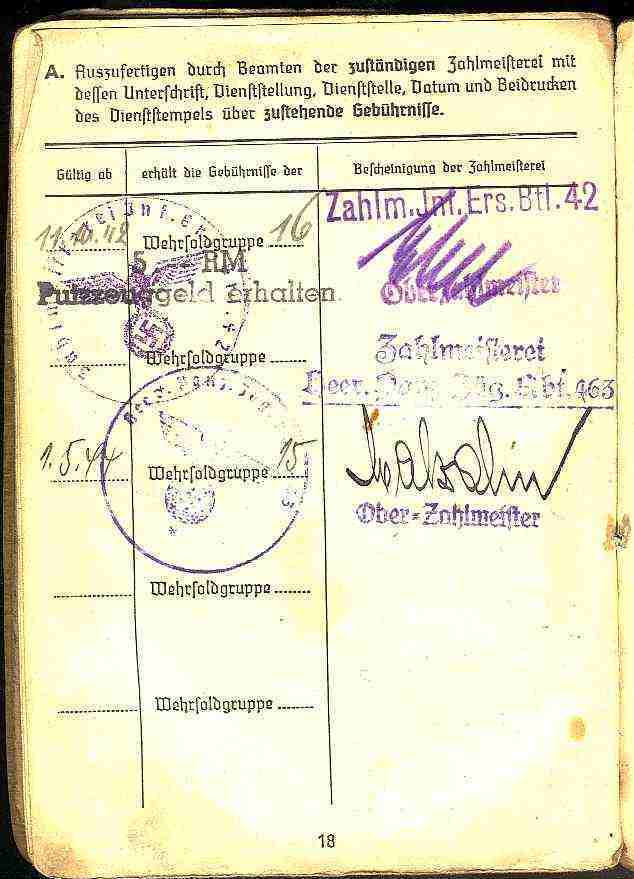 A. Auszufertigen durch Beamten der zuständigen Zahlmeisterei mit
dessen Unterschrift, Dienststellung, Dienststelle, Datum und Beidrucken
des Dienststempels über zustehende Gebührnisse.
Gültig ab
erhält die Gebührnisse der
Bescheinigung der Zahlmeisterei
Zahlm.Inf.Ers.Btl.42
11.10.42 Wehrsoldgruppe 16
5.-- RM
Putzzeuggeld erhalten.
Oberzahlmeister
Wehrsoldgruppe
Zahlmeisterei
Heer. Panz. Jäg. Abt. 463
1.5.44 Wehrsoldgruppe 15
Ober-Zahlmeister
Wehrsoldgruppe
Wehrsoldgruppe
18